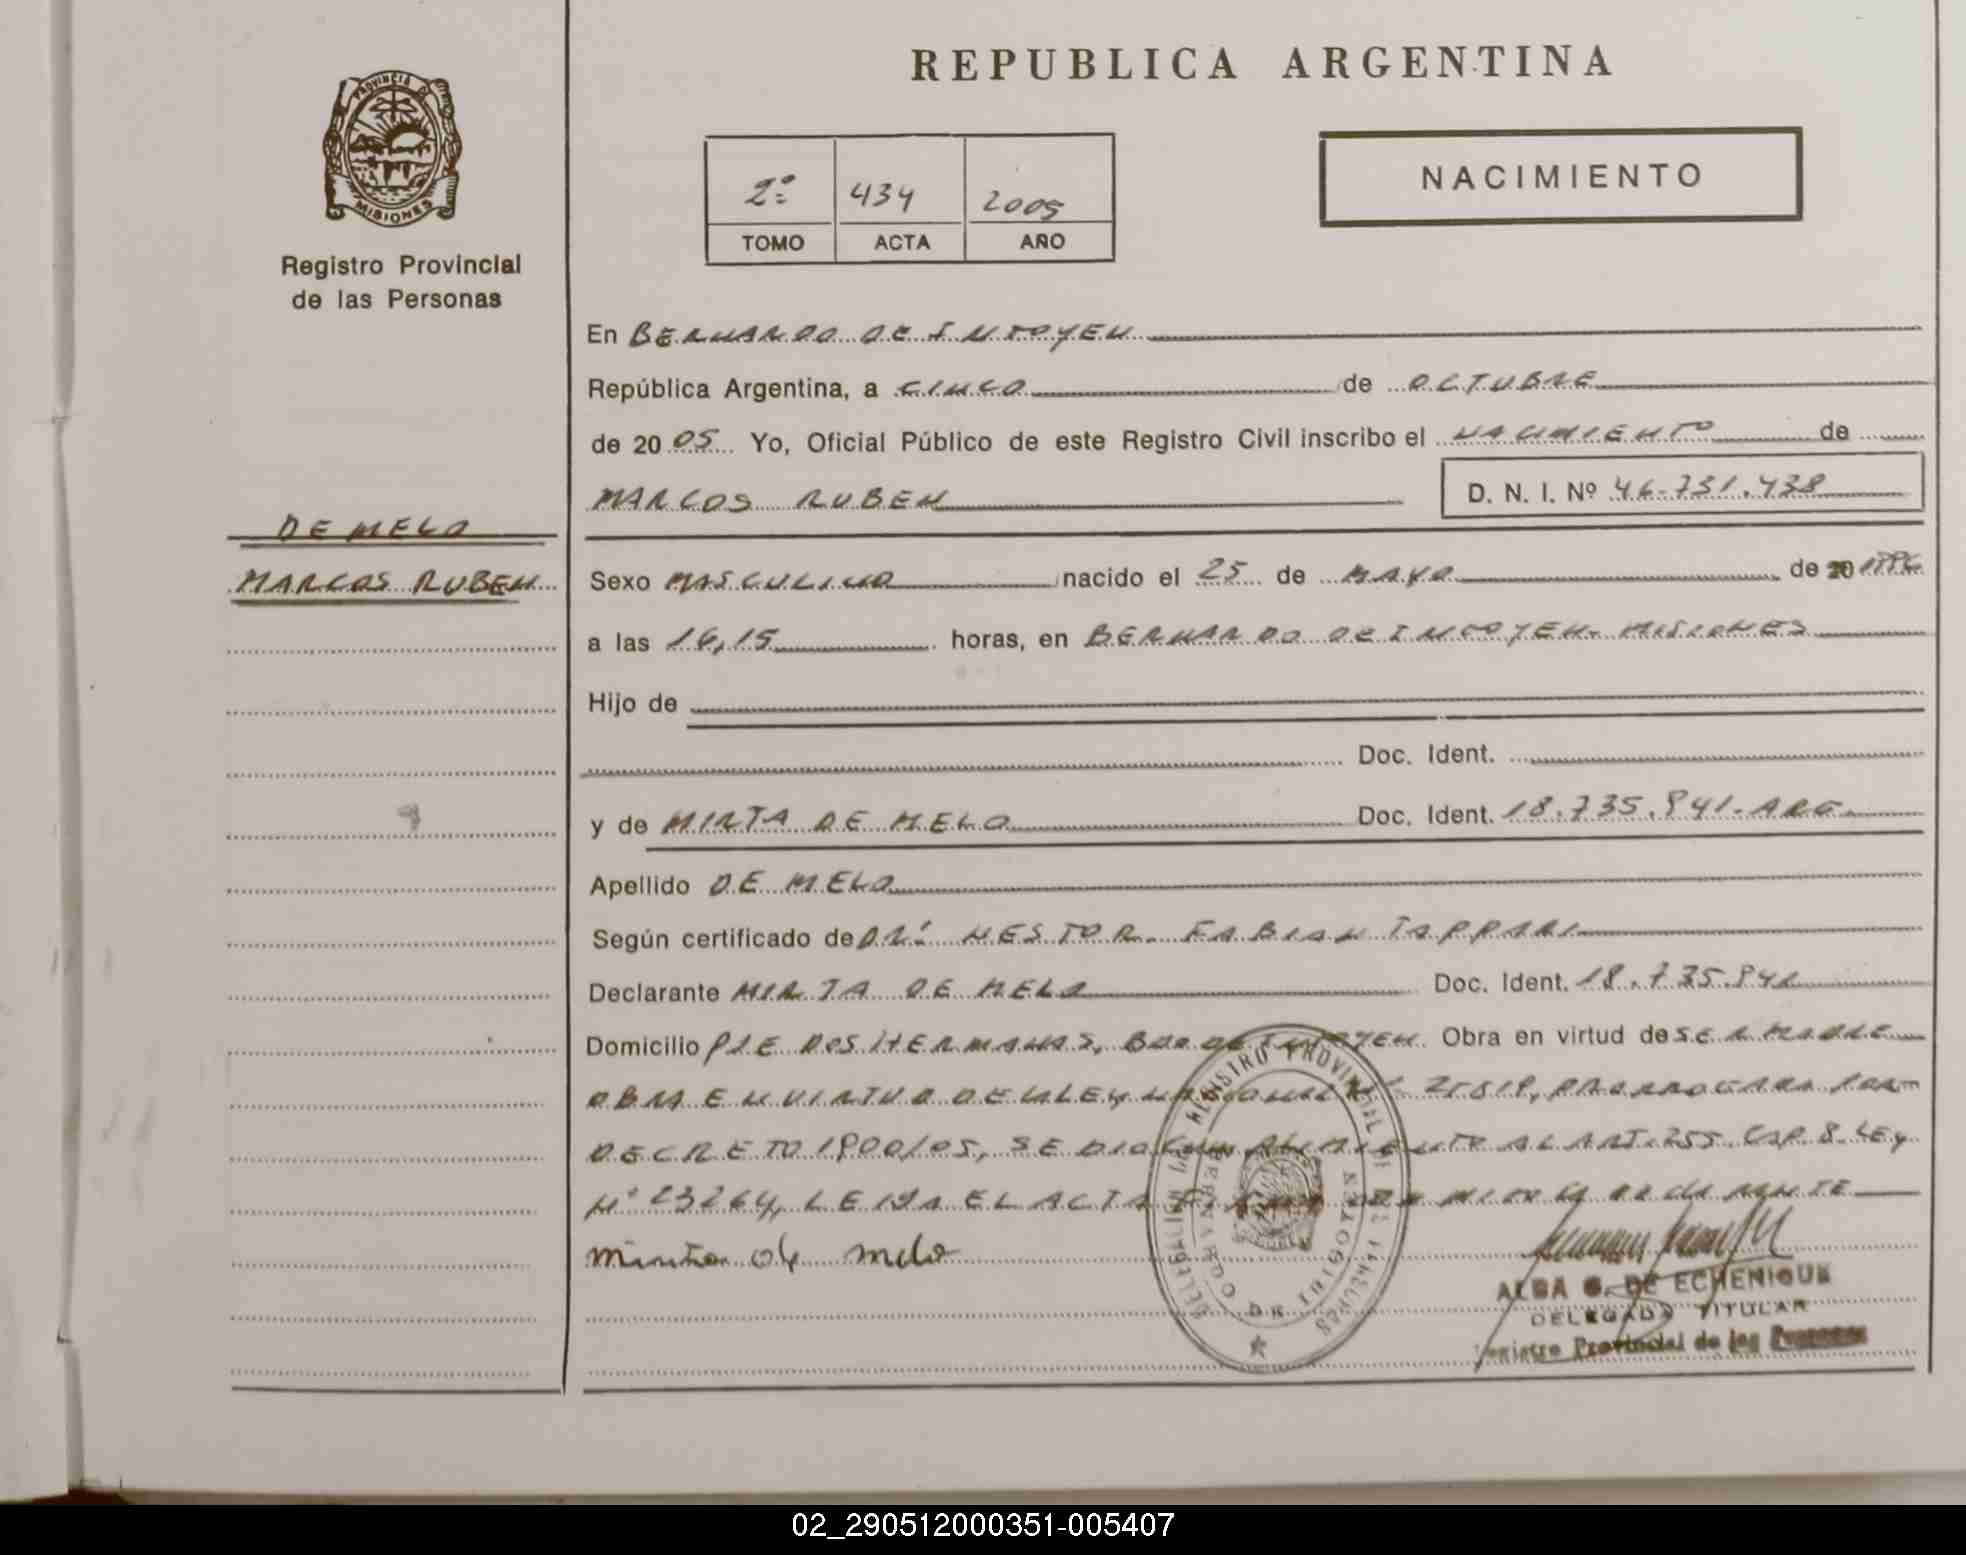 REPUBLICA ARGENTINA
PROVINCIA DE
MISIONES
Registro Provincial
de las Personas
2º 434 2005
TOMO ACTA AÑO
NACIMIENTO
En BERNARDO DE IRIGOYEN
República Argentina, a CINCO de OCTUBRE
de 2005 Yo, Oficial Público de este Registro Civil inscribo el NACIMIENTO de
MARCOS RUBEN D. N. I. Nº 46.731.438
DE MELO
MARCOS RUBEN
Sexo MASCULINO nacido el 25 de MAYO de 20 1996
a las 16,15 horas, en BERNARDO DE IRIGOYEN- MISIONES
Hijo de
Doc. Ident.
y de MIRTA DE MELO Doc. Ident. 18.735.841- ARG
Apellido DE MELO
Según certificado de DR. NESTOR FABIAN TAPPARI
Declarante MIRTA DE MELO Doc. Ident. 18.735.841
Domicilio PJE DOS HERMANAS, BDO DE IRIGOYEN Obra en virtud de SER MADRE
OBRA EN VIRTUD DE LA LEY NACIONAL Nº 25819, PRORROGADA POR
DECRETO 1900/05, SE DIO CUMPLIMIENTO AL ART. 255 CAP. 8 LEY
Nº 23264, LEIDA EL ACTA
Mirta de melo
ALBA G. DE ECHENIQUE
DELEGADA TITULAR
Registro Provincial de las Personas
DELEGACION REGISTRO PROVINCIAL DE LAS PERSONAS
BERNARDO DE IRIGOYEN
02_290512000351-005407